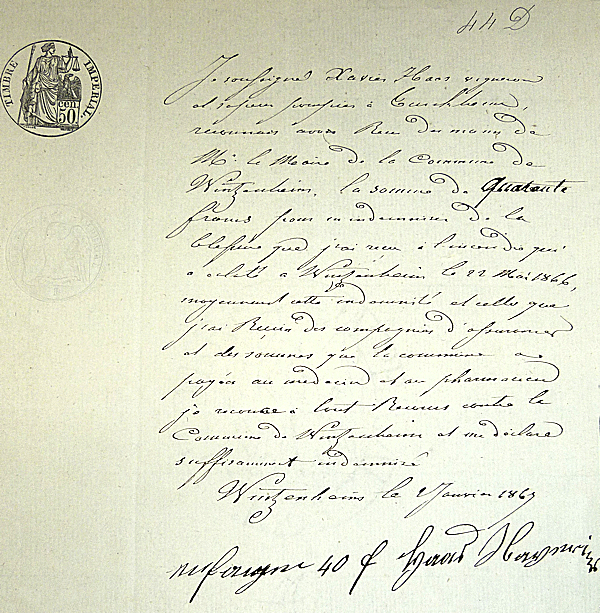 44 D
TIMBRE IMPERIAL
50 cen
Je soussigné Xavier Haas vigneron
et sapeur pompier à
reconnais avoir Recu des mains de
Mr. le Maire de la Commune de
Wintzenheim, la somme de Quarante
francs pour m indemniser de la
blessure que j'ai recu à l'incendie qui
a eclaté a Wintzenheim le 22 Mai 1866,
moyennant cette indemnité et celles que
j'ai Recu des compagnies d'assurances
et des sommes que la commune a
payées au medecin et au pharmacien
je renonce à tout Recours contre la
Commune de Wintzenheim et me déclare
suffisamment indemnisé
Wintzenheim le Janvier 1867
40 f Haas